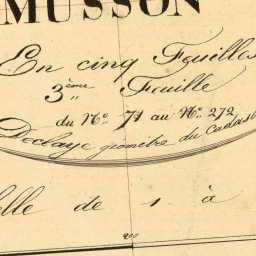 MUSSON
En cinq Feuilles
3ème Feuille
du No. 71 au No. 272
Declaye géomètre du Cadas
elle de 1 à
200